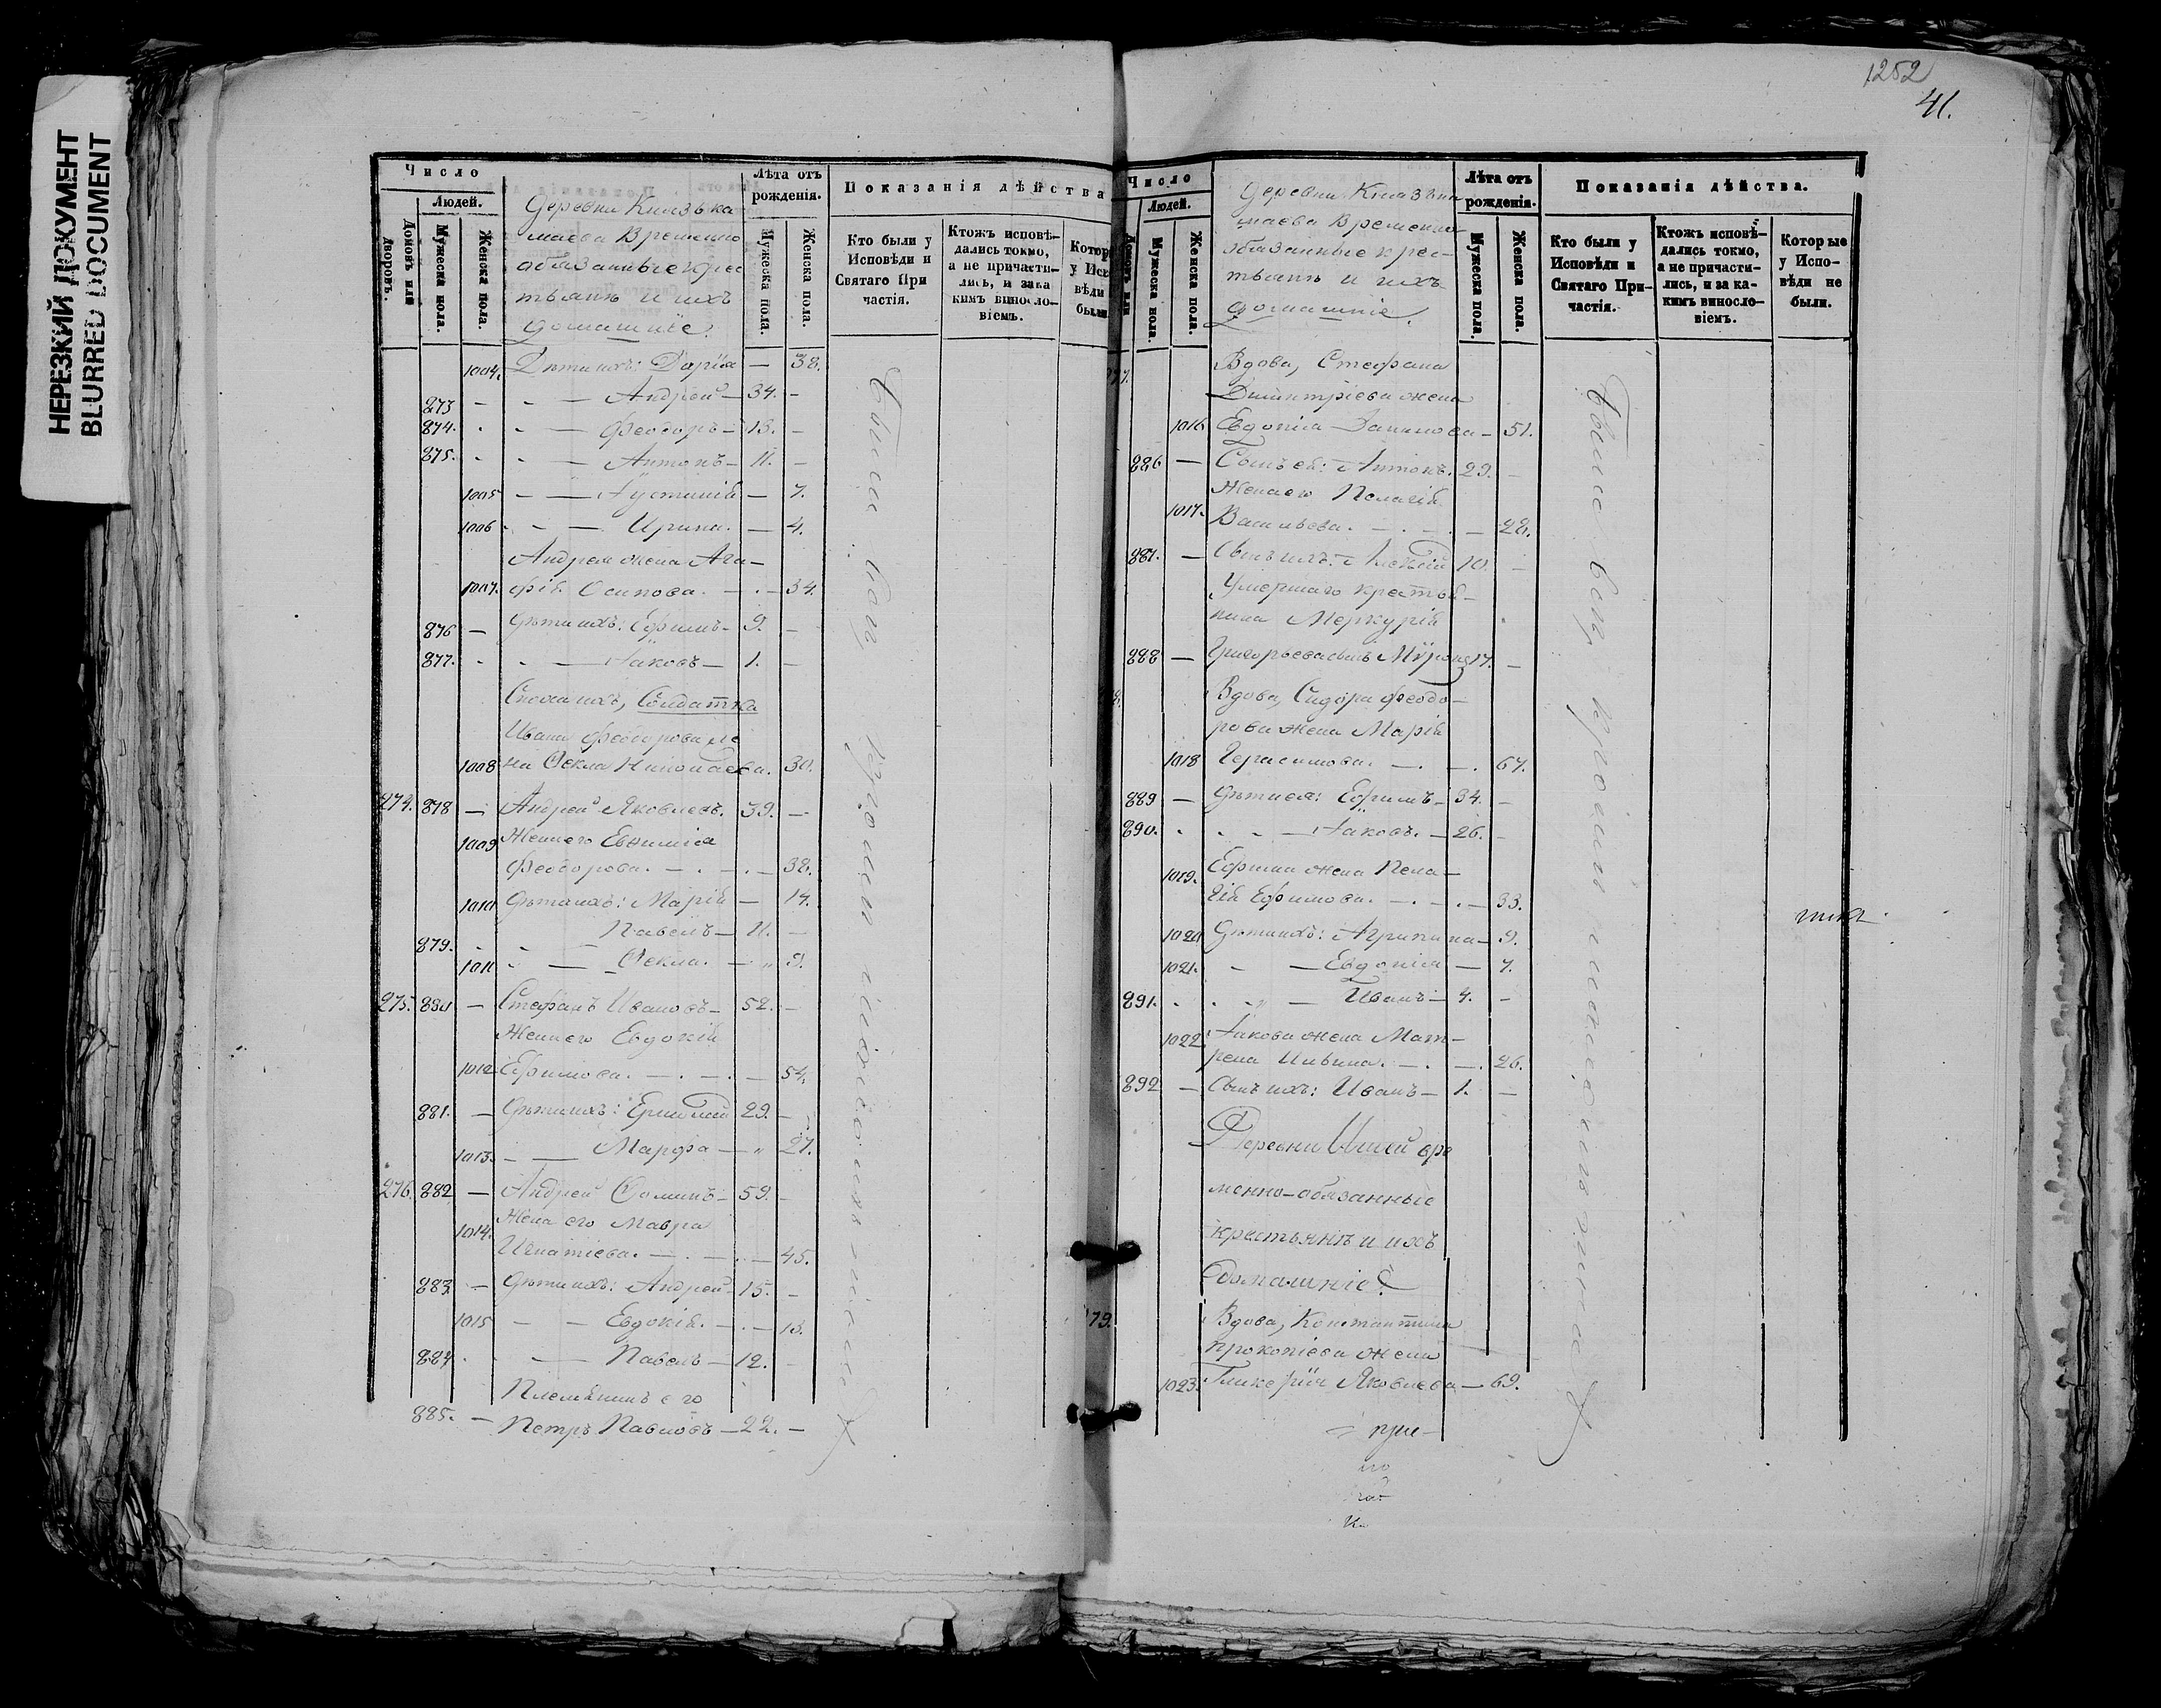 НЕРЕЗКИЙ ДОКУМЕНТ
BLURED DOCUMENT
1252
41.
Число
Людей.
Домовъ или дворовъ.
Мужеска пола.
Женска пола.
Деревни Князька
маева Временно
обязанные крес
тьянѣ и ихъ
домашніе.
Лѣта отъ рожденія.
Мужеска пола.
Женска пола.
Показанія дѣйства
Кто были у Исповѣди и Святаго При частія.
Ктожъ исповѣ- дались токмо, а не причасти- лись, и зака кимъ виносло- віемъ.
Котор у Исп вѣди были
1004. Дѣти ихъ: Дарія — 38.
873 — Андрей — 34. —
874. — Феодоръ — 13. —
875. — Антонъ — 11. —
1005 — Іустинія — 7.
1006 — Ирина. — 4.
Андрея жена Ага-
1007. фія Осипова. — 34.
876 — Дѣти ихъ: Ефимъ — 9. —
877. — Іаковъ — 1. —
Сноха ихъ, Солдатка
Ивана Феодорова же
1008 на Ѳекла Николаева. 30.
274. 878 — Андрей Яковлевъ. 39. —
1009 Жена его Евѳимія
Феодорова. — 38.
1010 Дѣти ихъ: Марія — 14.
879. Павелъ — 11. —
1011 — Ѳекла. — 9.
275. 880 — Стефанъ Ивановъ — 52. —
Жена его Евдокія
1012 Ефимова. — 54.
881. — Дѣти ихъ: Ермолай 29. —
1013. — Марфа — 27.
276. 882 — Андрей Ѳоминъ — 59. —
1014. Жена его Мавра
Игнатіева. — 45.
883. — Дѣти ихъ: Андрей 15. —
1015 — Евдокія. — 13.
884. — Павелъ — 12. —
Племянникъ его
885. — Петръ Павловъ — 22. —
Число
Людей.
Мужеска пола.
Женска пола.
Деревни Князька
маева Временно
обязанные крес-
тьянѣ и ихъ
домашніе.
Лѣта отъ рожденія.
Мужеска пола
Женска пола.
Показанія дѣйства.
Кто были у Исповѣди и Святаго При- частія.
Ктожъ исповѣ- дались токмо, а не причасти- лись, и за ка- кимъ виносло- віемъ.
Которые у Испо- вѣди не были.
Вдова, Стефана
Димитріева жена
1016 Евдокія — 51.
886 — Сынъ ей: Антонъ. 29. —
Жена его Пелагія
1017. Васильева. — 28.
887. — Сынъ ихъ: Алексій 10. —
Умершаго крестья-
нина Меркурія
888 — Григорьева сынъ Мѵронъ 17. —
Вдова, Сидора Феодо-
рова жена Марія
1018 Герасимова. — 67.
889 — Дѣти ея: Ефимъ — 34. —
890. — Іаковъ. — 26. —
1019. Ефима жена Пела-
гія Ефимова. — 33.
1020 Дѣти ихъ: Агрипина — 9.
1021. — Евдокія — 7.
891. — Иванъ — 4. —
1022 Іакова жена Мат-
рена Ильина. — 26.
892 — Сынъ ихъ: Иванъ — 1. —
Деревни вре
менно-обязанные
крестьянѣ и ихъ
домашніе
Вдова, Константина
Прокопіева жена
1023. Гликерія Яковлева — 69.